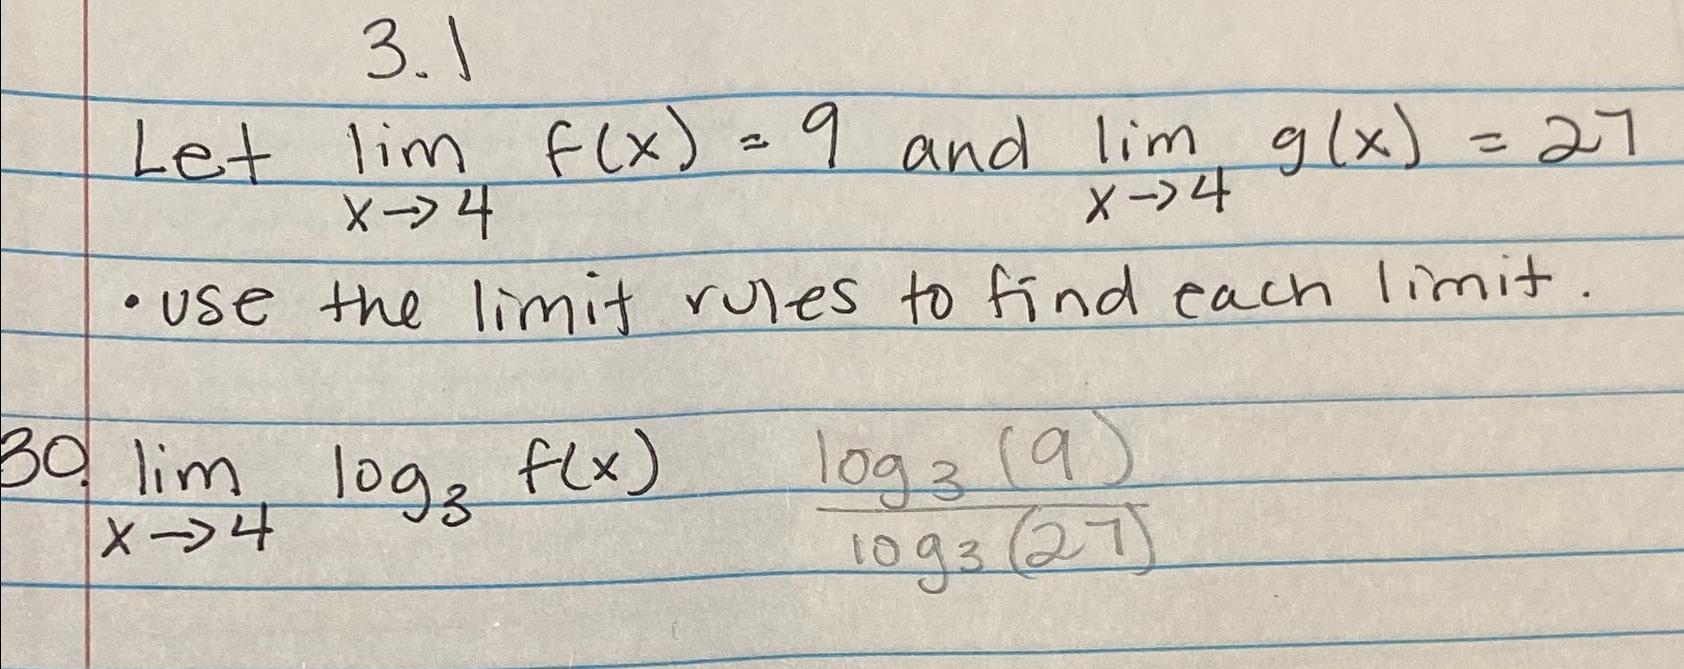 3.1
Let lim f(x) = 9 and lim g(x) = 27
x→4 x→4
• use the limit rules to find each limit.
30. lim log₃ f(x) log₃(9)
x→4 log₃(27)